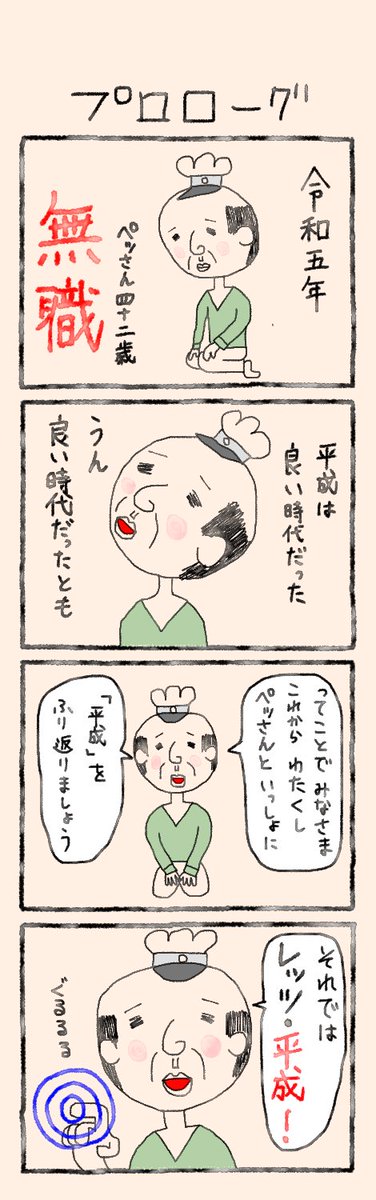 プロローグ
令和五年
ペッさん四十二歳
無職
平成は
良い時代だった
うん
良い時代だったとも
ってことでみなさま
これから わたくし
ペッさんと いっしょに
「平成」を
ふり返りましょう
それでは
レッツ・平成！
ぐるるる